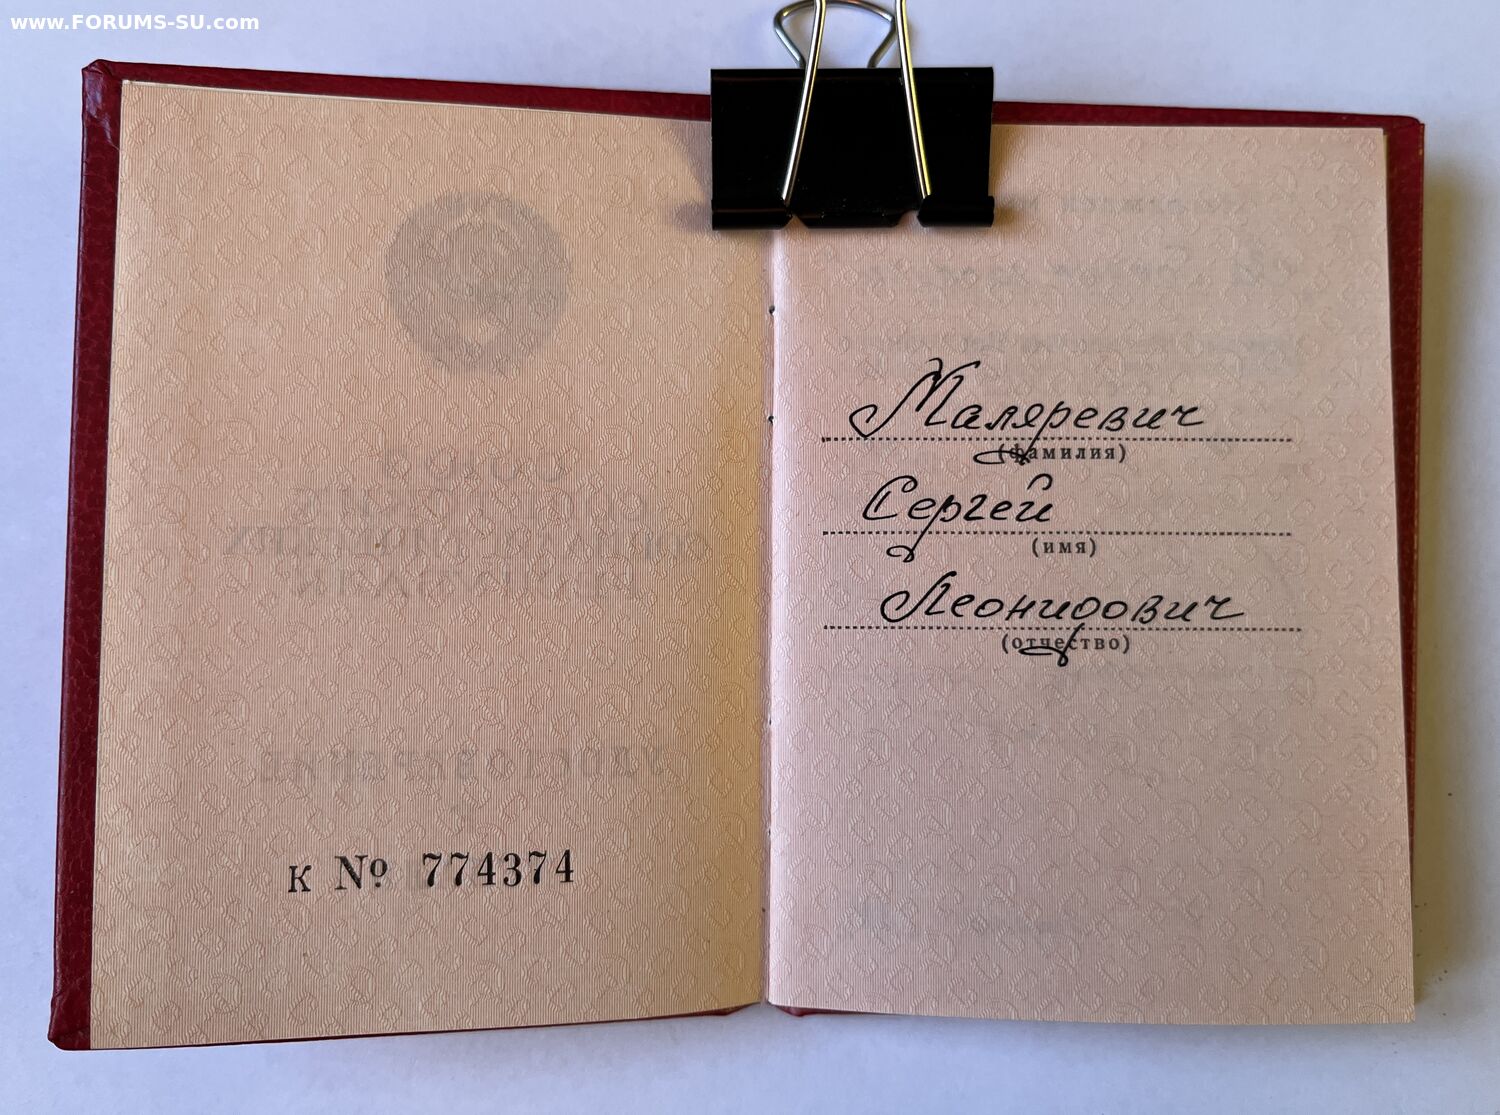 www.FORUMS-SU.com
к № 774374
Маляревич
(фамилия)
Сергей
(имя)
Леонидович
(отчество)